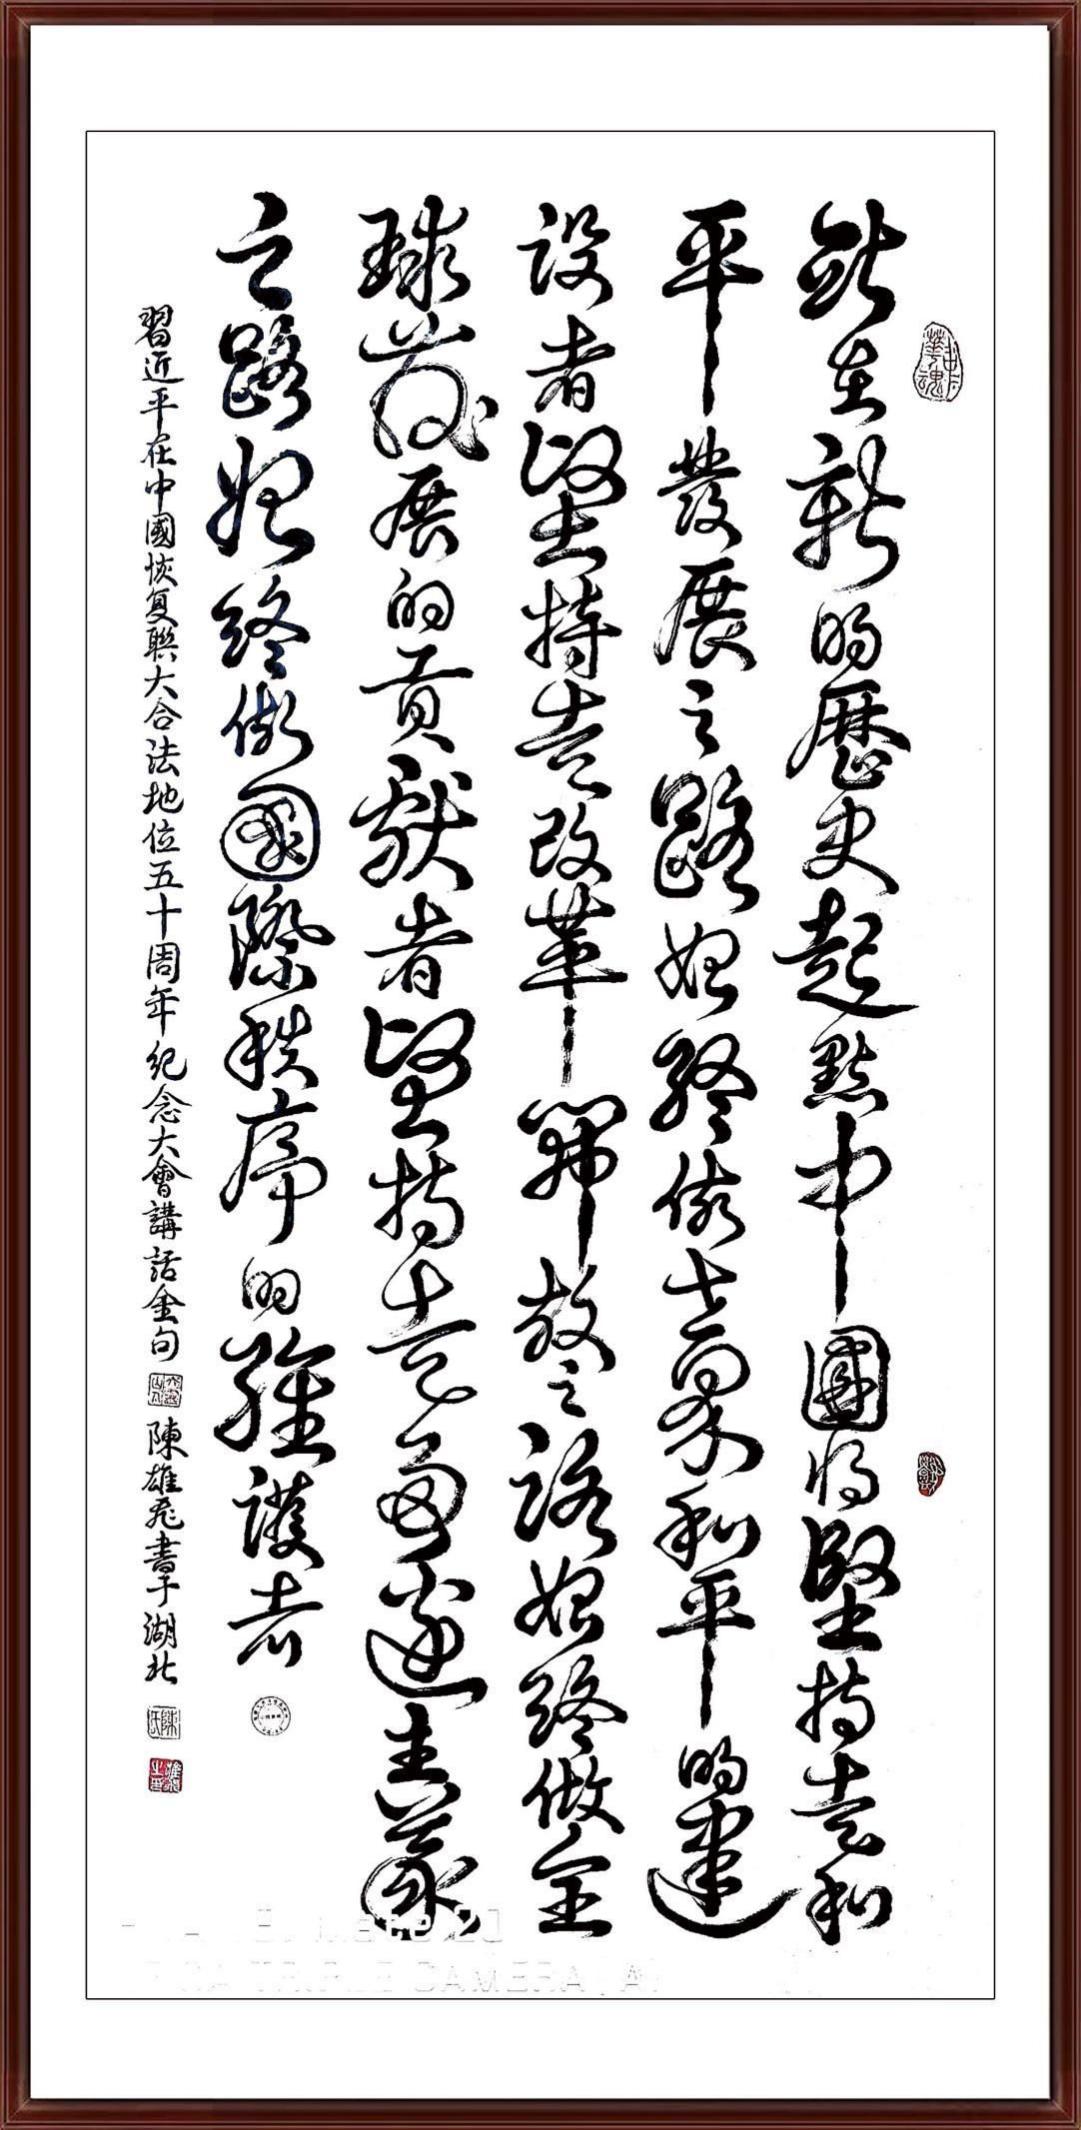 中華魂
站在新的歷史起點中國將堅持走和
平發展之路始終做世界和平的建
設者堅持走改革開放之路始終做全
球發展的貢獻者堅持走多邊主義
之路始終做國際秩序的維護者
習近平在中國恢复聯大合法地位五十周年紀念大會講話金句
陳雄飛書于湖北
陳氏
CAMERA